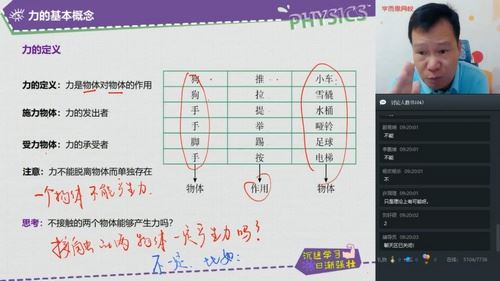 力的基本概念
PHYSICS
学而思网校
力的定义
力的定义：力是物体对物体的作用
施力物体：力的发出者
受力物体：力的承受者
注意：力不能脱离物体而单独存在
一个物体不能产生力.
狗 推 小车
狗 拉 雪橇
手 提 水桶
手 举 哑铃
脚 踢 足球
手 按 电梯
物体 作用 物体
思考：不接触的两个物体能够产生力吗?
接触的两物体一定产生力吗?
不一定. 比如:
沉迷学习
日渐茁壮
09:20:01
不能
09:20:01
不能
09:20:01
不
09:20:01
只是理论上有可能点.
09:20:01
2
09:20:01
聊天区已关闭!
礼物
在线: 5104/7736